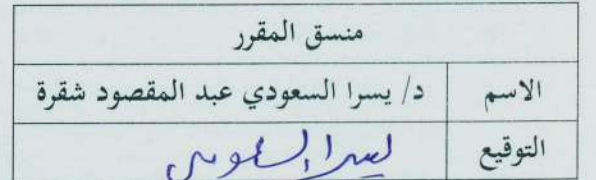 منسق المقرر
الاسم د/ يسرا السعودي عبد المقصود شقرة
التوقيع يسرا السعودي